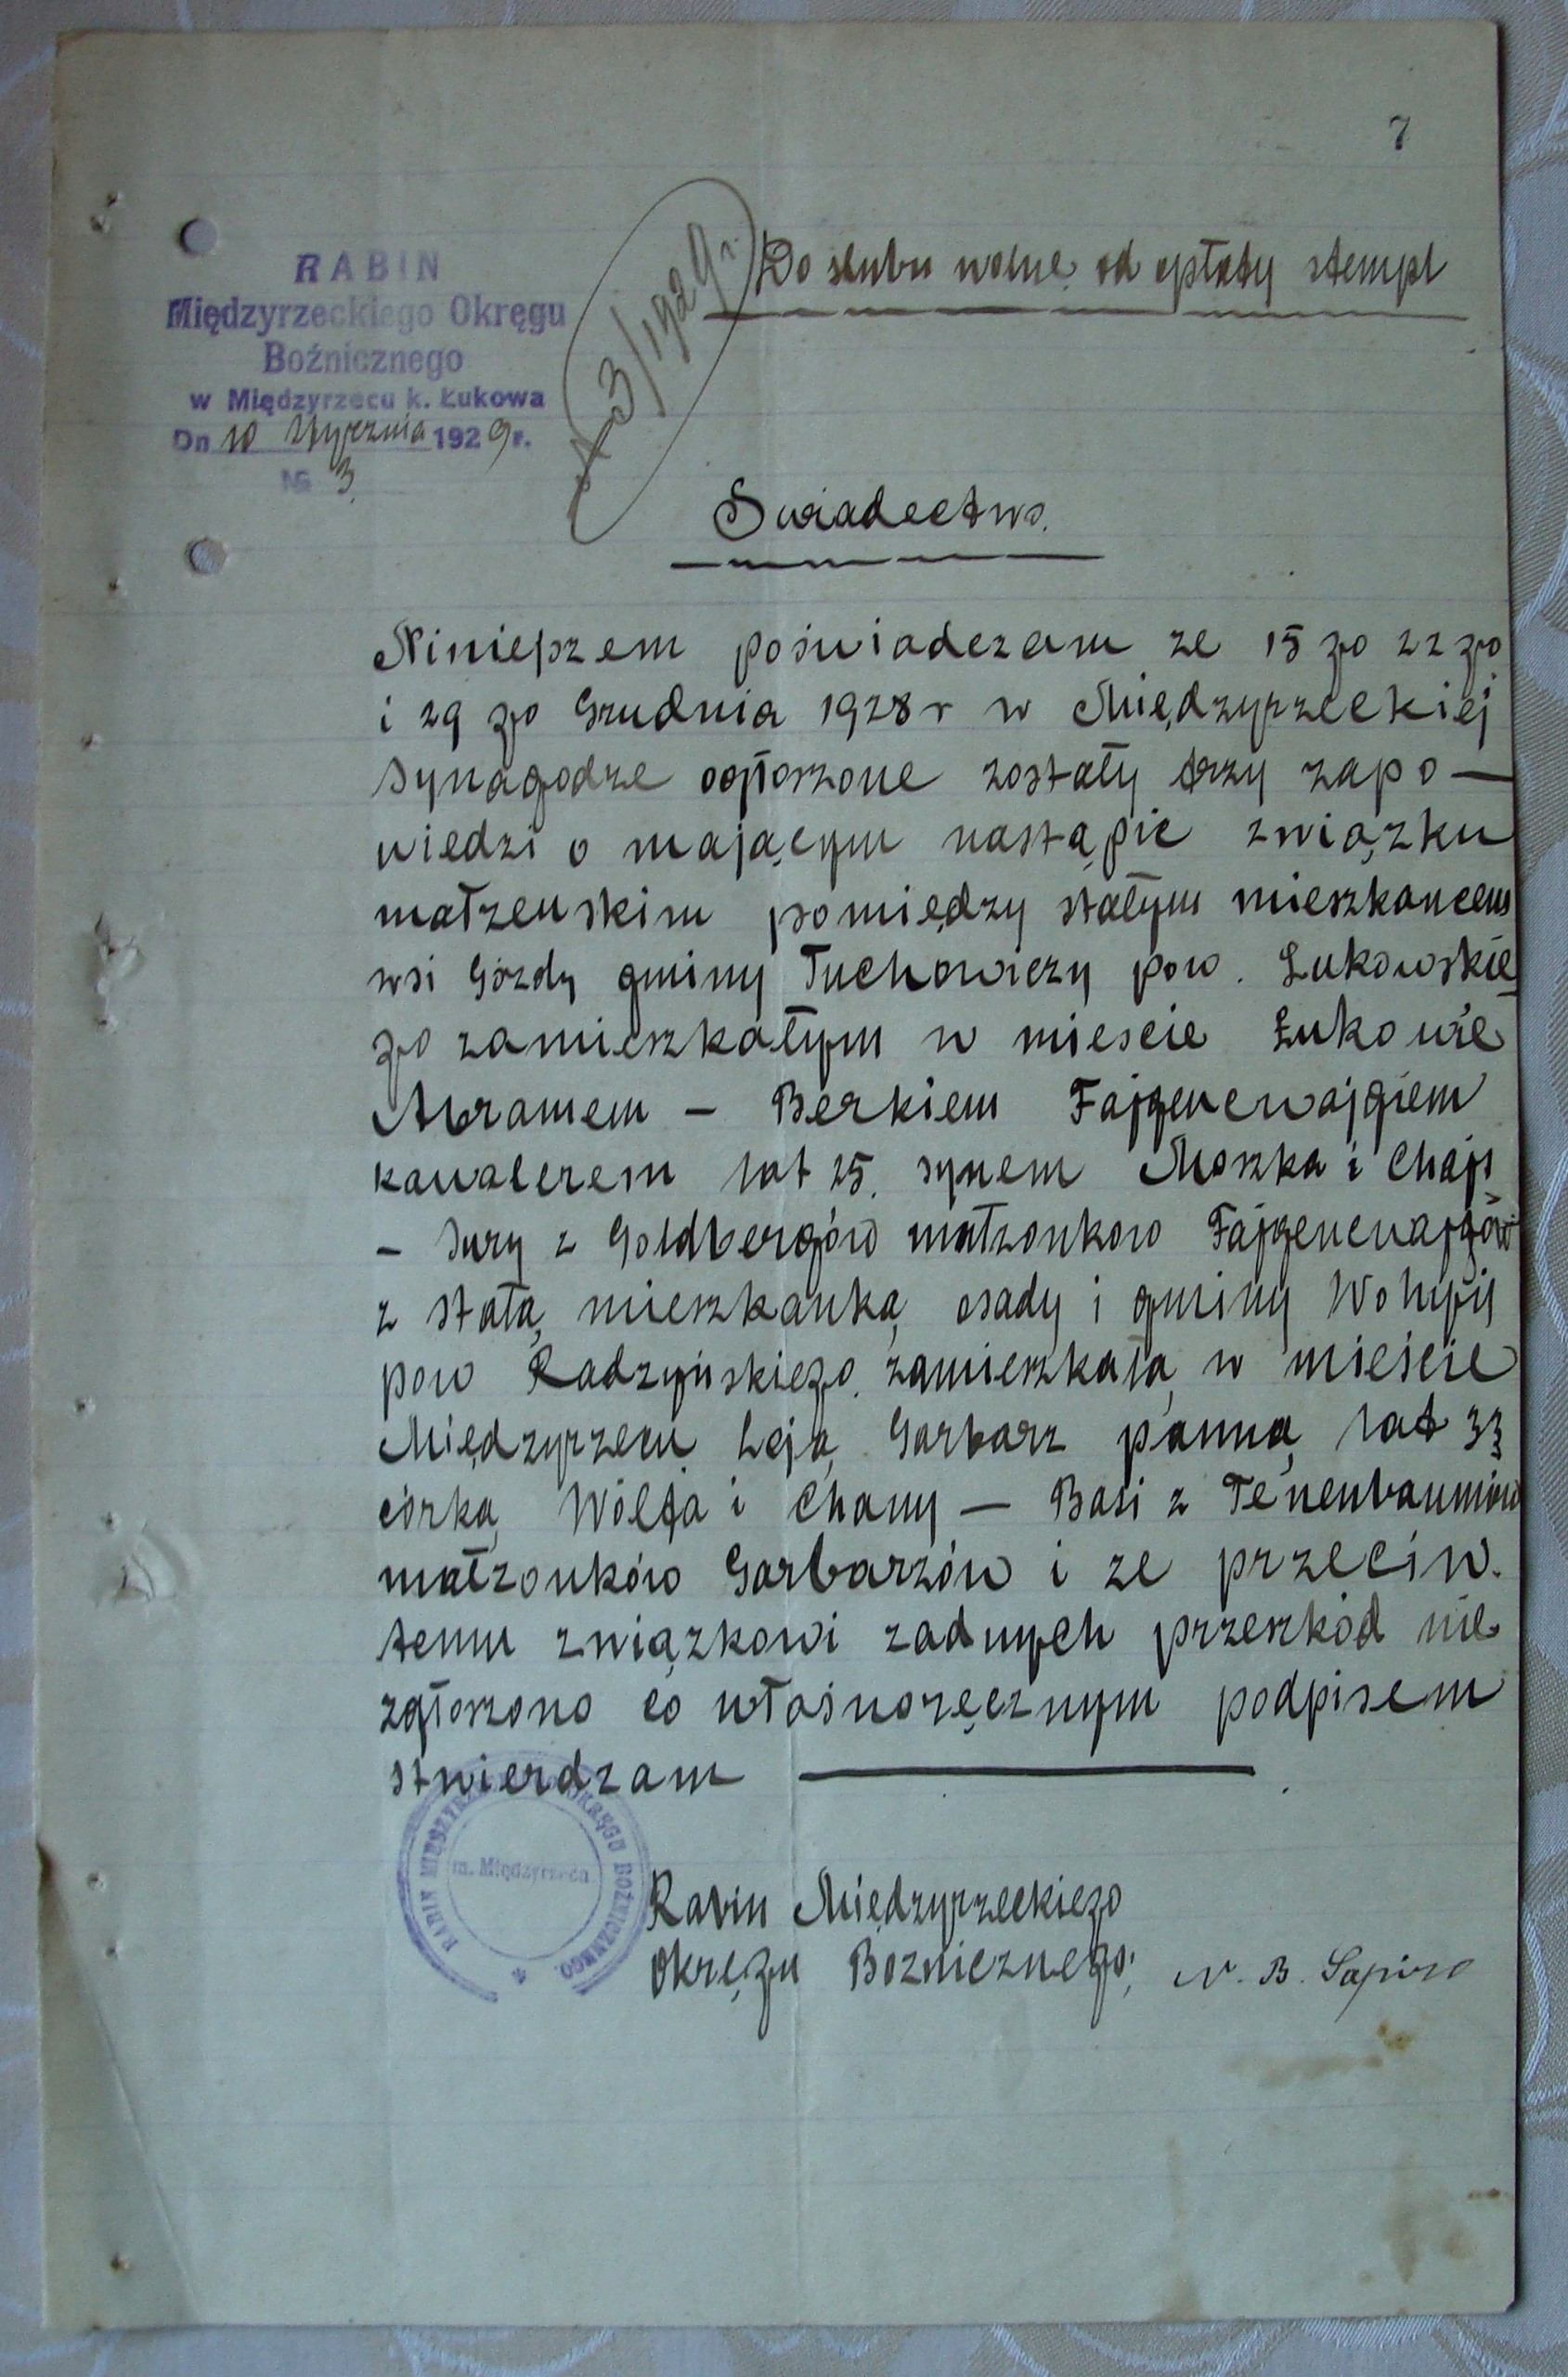 7
RABIN
Międzyrzeckiego Okręgu
Bożnicznego
w Międzyrzecu k. Łukowa
Dn 10 Stycznia 1929 r.
№ 3.
A 3/1929 r.
Do slubu wolne od opłaty stempl
Swiadectwo.
Niniejszem poświadczam ze 15 go 22 go
i 29 go Grudnia 1928 r w Międzyrzeckiej
synagodze ogłoszone zostały trzy zapo-
wiedzi o mającym nastąpic związku
małzenskim pomiędzy stałym mieszkancem
wsi Gózdy gminy Tuchowiczy pow. Łukowskie
go zamieszkałym w miescie Łukowie
Abramem - Berkiem Fajgencwajgiem
kawalerem lat 25. synem Moszka i Chaji
- Sury z Goldbergów małzonkow Fajgencwajgów
z stałą mieszkanką osady i gminy Wohyń
pow Radzyńskiego. zamieszkałą w mieście
Międzyrzecu Leją Garbarz panną lat 33
córką Wólfa i Chany - Basi z Tenenbaumów
małzonków Garbarzów i ze przeciw.
temu związkowi zadnych przeszkód nie
zgłoszono co własnoręcznym podpisem
stwierdzam
RABIN MIĘDZYRZ OKRĘGU BOŻNICZNEGO
m. Międzyrzeca
Rabin Międzyrzeckiego
Okręgu Boznicznego; N. B. Sapiro